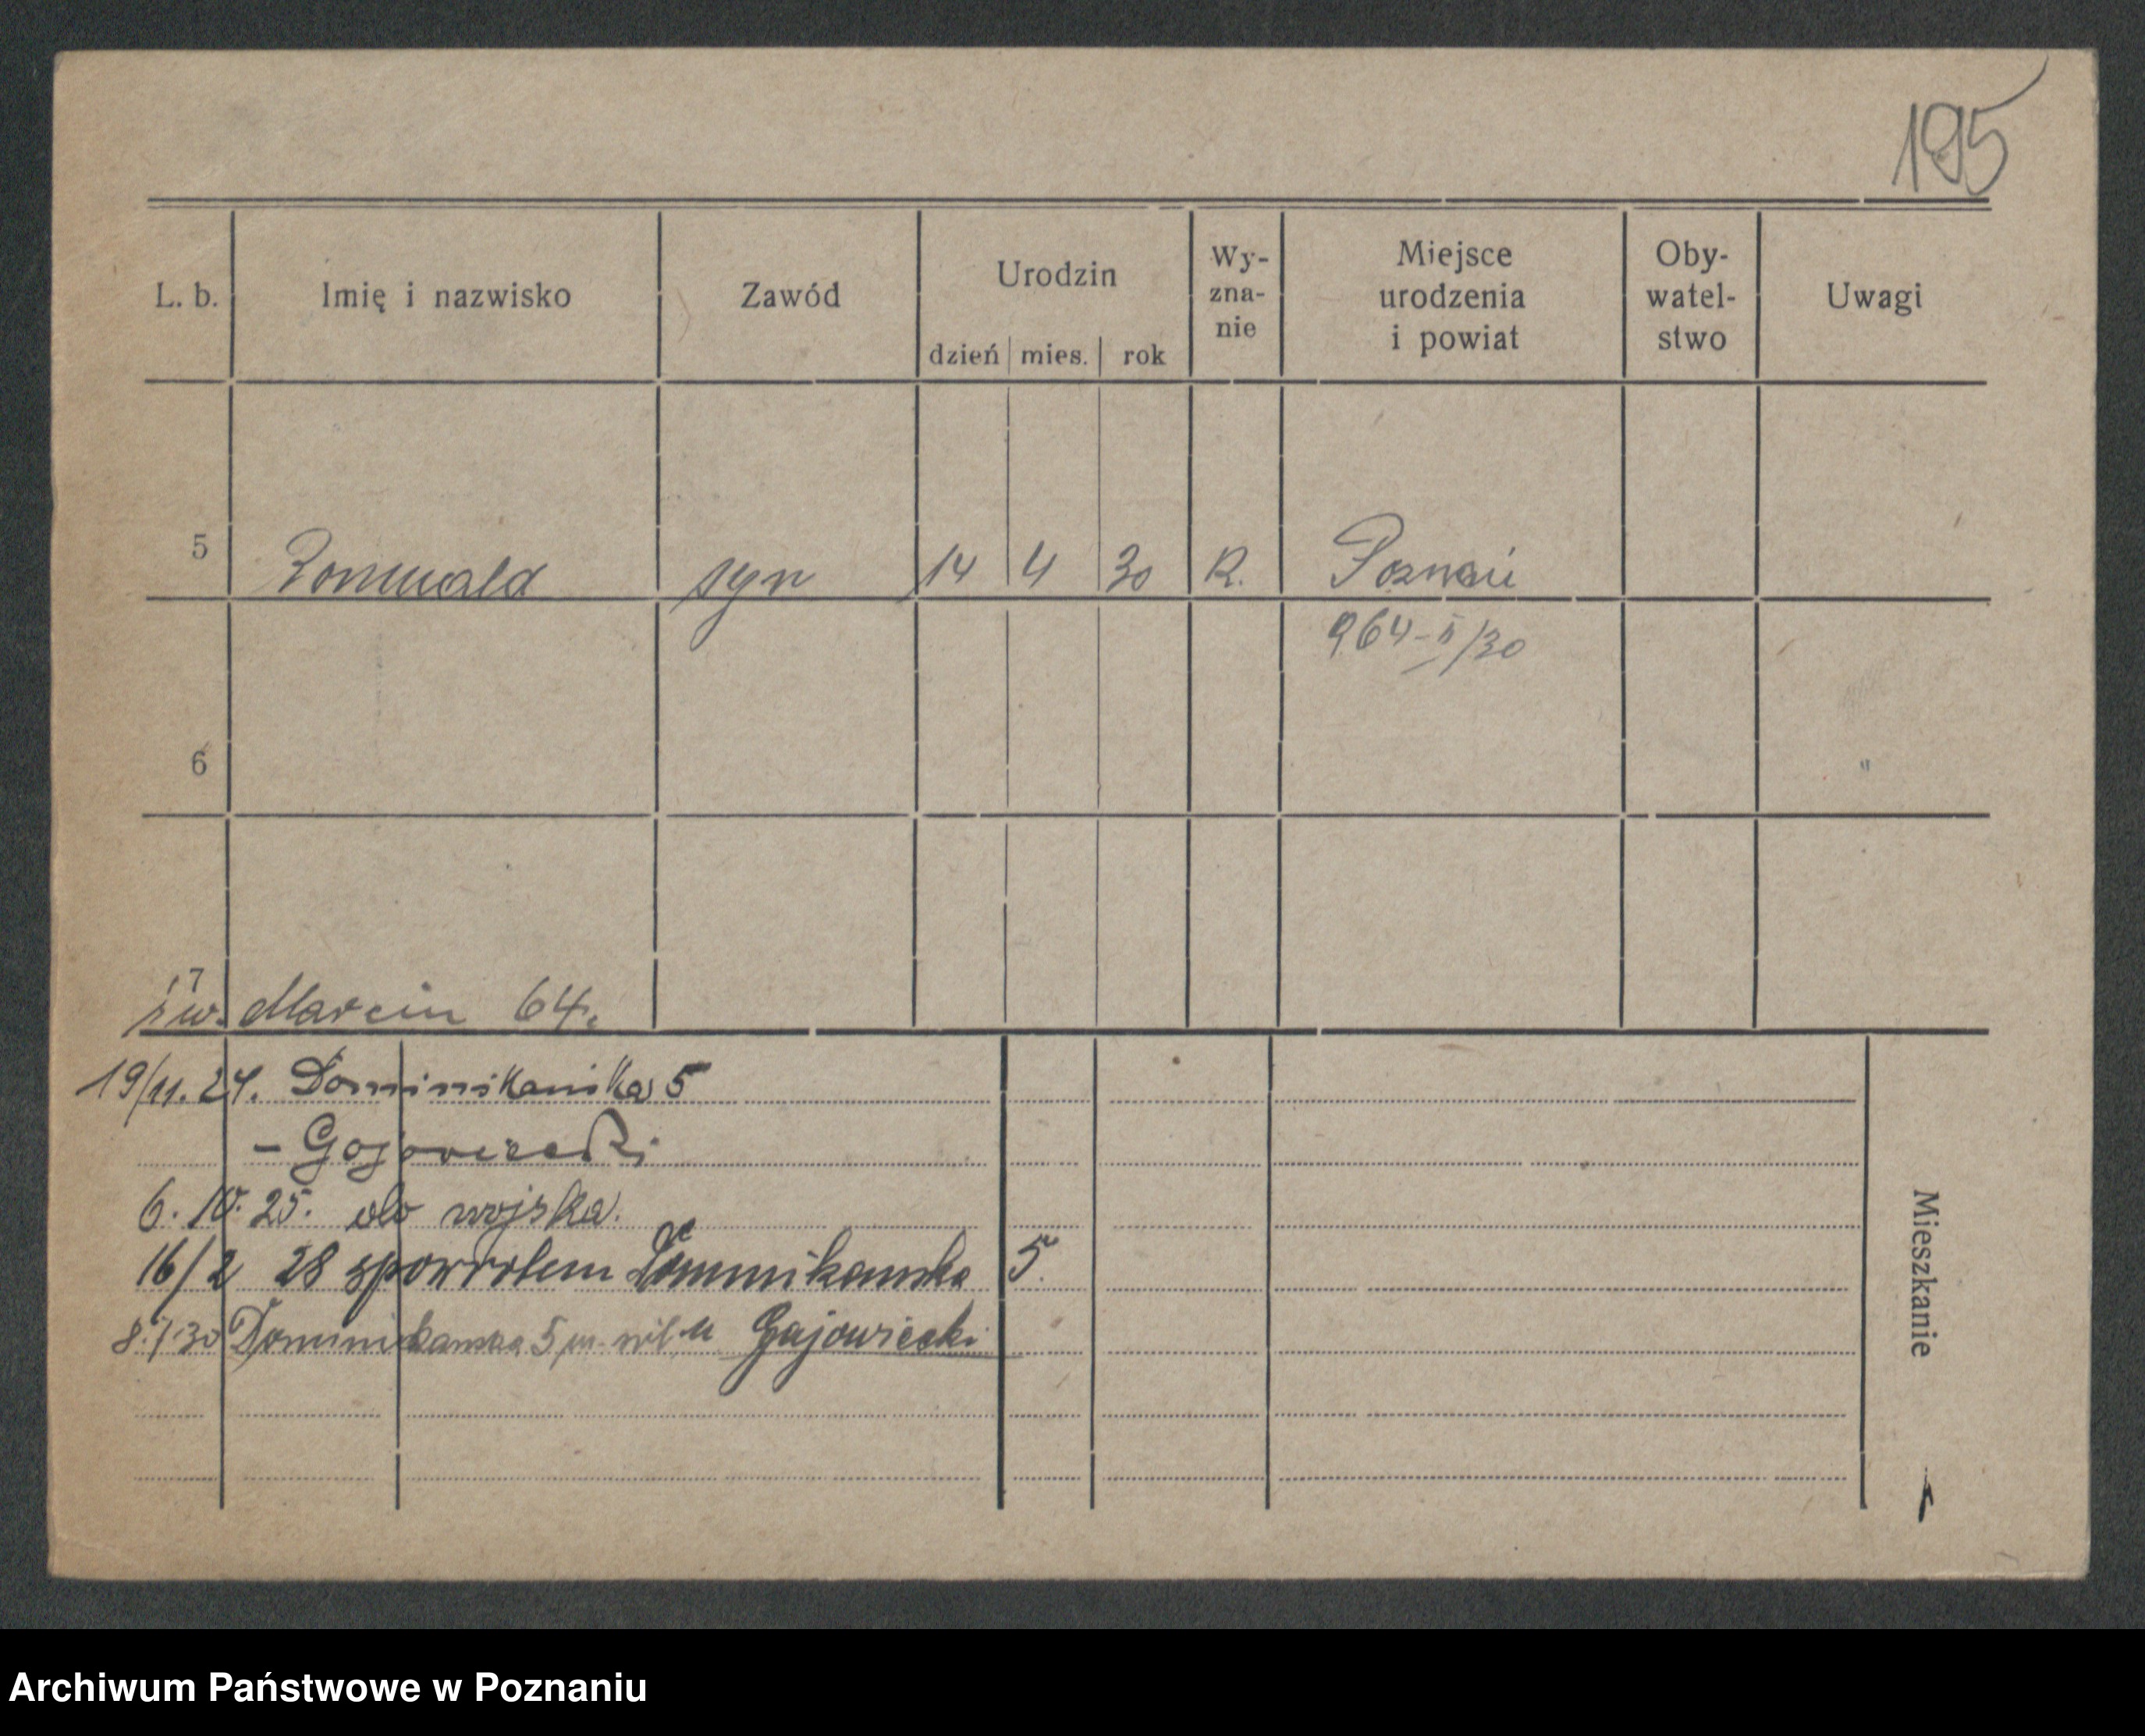 195
L. b. Imię i nazwisko Zawód Urodzin dzień mies. rok Wy-zna-nie Miejsce urodzenia i powiat Oby-watel-stwo Uwagi
5 Romuald syn 14 4 30 R. Poznań
964-II/30
6
7
św. Marcin 64.
19/11. 24. Dominikańska 5
- Gajowiecki
6. 10. 25. do wojska.
16/2 28 spowrotem Dominikańska 5.
8.7.30 Dominikańska 5 m. Gajowiecki
Mieszkanie
Archiwum Państwowe w Poznaniu